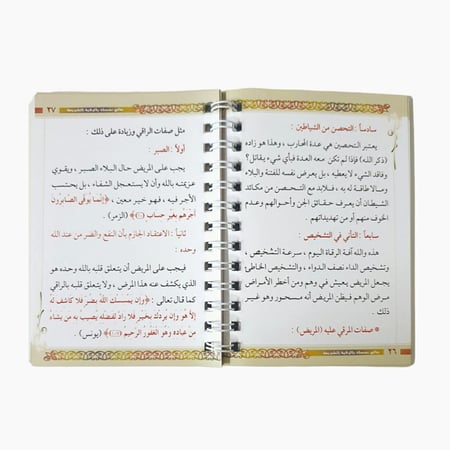 سادساً : التحصن من الشياطين :
يعتبر التحصين هي عدة المحارب ، وهذا هو زاده
(ذكر الله) فإذا لم تكن معه العدة فبأي شيء يقاتل؟
وفاقد الشيء لا يعطيه ، بل يعرض نفسه للفتنة والبلاء
ومالا طاقة له به ، فلابد مع التحصن من مكائد
الشيطان أن يتعرف حقائق الجن وأحوالهم وعدم
الخوف منهم أو من تهديداتهم .
سابعاً : التأني في التشخيص :
هذه والله آفة الرقاة اليوم ، سرعة التشخيص ،
وتشخيص الداء نصف الدواء ، والتشخيص الخاطئ
يجعل المريض يعيش في وهم ومن أخطر الأمراض
مرض الوهم فيظن المريض أنه مسحور وهو غير
ذلك .
* صفات المرقي عليه (المريض) :
٢٦
٢٧
مثل صفات الراقي وزيادة على ذلك :
أولاً : الصبر :
يجب على المريض حال البلاء الصبر ، ويقوي
عزيمته بالله وأن لا يستعجل الشفاء ، بل يحتسب
الأجر فيه ، فهو خير معين ، ﴿إِنَّمَا يُوَفَّى الصَّابِرُونَ
أَجْرَهُم بِغَيْرِ حِسَابٍ﴾ (الزمر) .
ثانياً : الاعتقاد الجازم بأن النفع والضر من عند الله
وحده :
فيجب على المريض أن يتعلق قلبه بالله وحده هو
الذي يكشف عنه هذا المرض ، ولا يتعلق قلبه بالراقي
كما قال تعالى : ﴿وَإِن يَمْسَسْكَ اللَّهُ بِضُرٍّ فَلَا كَاشِفَ لَهُ
إِلَّا هُوَ وَإِن يُرِدْكَ بِخَيْرٍ فَلَا رَادَّ لِفَضْلِهِ يُصِيبُ بِهِ مَن يَشَاءُ
مِنْ عِبَادِهِ وَهُوَ الْغَفُورُ الرَّحِيمُ﴾ (يونس) .